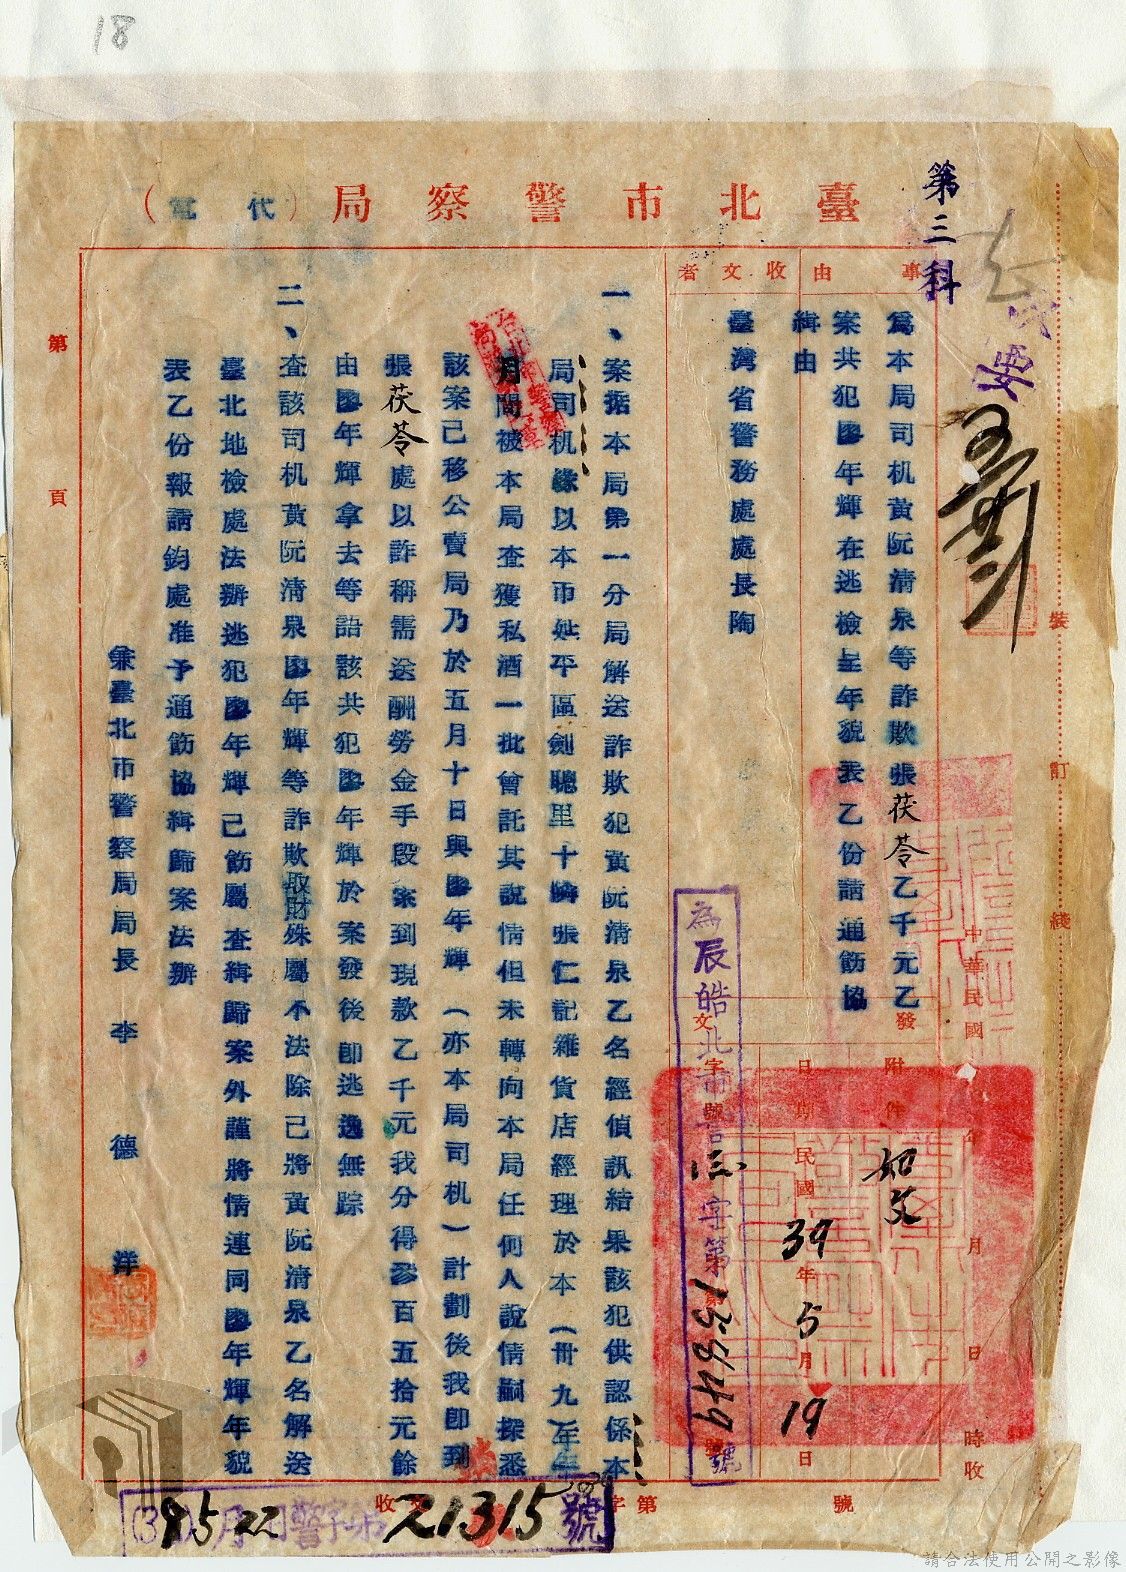 18
臺北市警察局(代電)
第三科
事由
為本局司机黃阮清泉等詐欺張茯苓乙千元乙
案共犯廖年輝在逃檢呈年貌表乙份請通飭協
緝由
收文者
臺灣省警務處處長陶
發文
附件
如文
日期
民國39年5月19日
字號
為辰皓北市警言三字第15849號
一、案据本局第一分局解送詐欺犯黃阮清泉乙名經偵訊結果該犯供認係本
局司机緣以本市延平區劍聰里十鄰張仁記雜貨店經理於本(卅九)年年
月間被本局查獲私酒一批曾託其說情但未轉向本局任何人說情嗣探悉
該案已移公賣局乃於五月十日與廖年輝(亦本局司机)計劃後我即到
張茯苓處以詐稱需送酬勞金手段案到現款乙千元我分得叄百五拾元餘
由廖年輝拿去等語該共犯廖年輝於案發後即逃逸無踪
二、查該司机黃阮清泉廖年輝等詐欺取財殊屬不法除已將黃阮清泉乙名解送
臺北地檢處法辦逃犯廖年輝已飭屬查緝歸案外謹將情連同廖年輝年貌
表乙份報請鈞處准予通飭協緝歸案法辦
兼臺北市警察局局長 李德洋
第 頁
裝訂綫
中華民國 年 月 日 時收
收文 字第 號
5 22 警字第21315號
請合法使用公開之影像